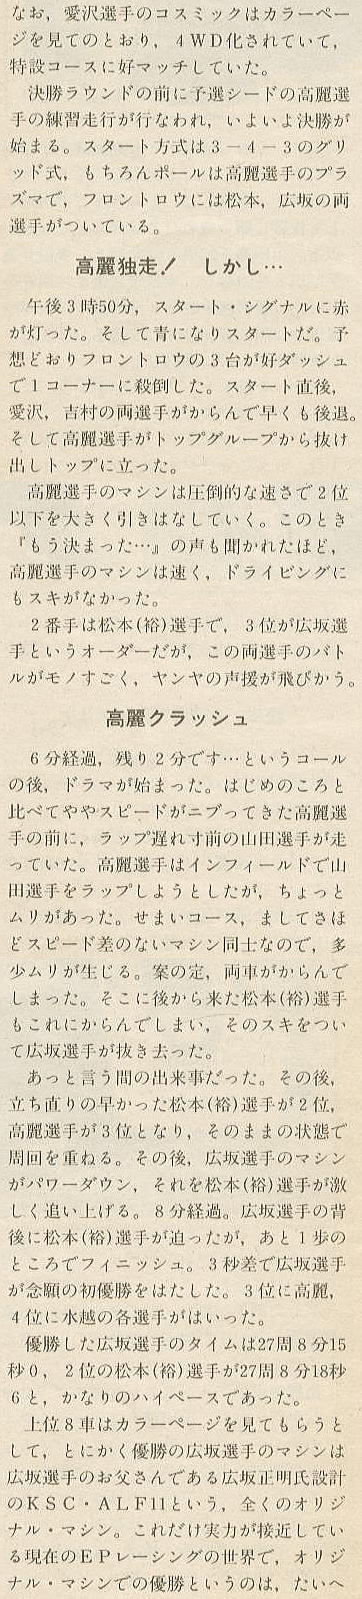 なお，愛沢選手のコスミックはカラーペー
ジを見てのとおり，４ＷＤ化されていて，
特設コースに好マッチしていた。
　決勝ラウンドの前に予選シードの高麗選
手の練習走行が行なわれ，いよいよ決勝が
始まる。スタート方式は３－４－３のグリ
ッド式，もちろんポールは高麗選手のプラ
ズマで，フロントロウには松本，広坂の両
選手がついている。
高麗独走！　しかし…
　午後３時50分，スタート・シグナルに赤
が灯った。そして青になりスタートだ。予
想どおりフロントロウの３台が好ダッシュ
で１コーナーに殺倒した。スタート直後，
愛沢，吉村の両選手がからんで早くも後退。
そして高麗選手がトップグループから抜け
出しトップに立った。
　高麗選手のマシンは圧倒的な速さで２位
以下を大きく引きはなしていく。このとき
『もう決まった…』の声も聞かれたほど，
高麗選手のマシンは速く，ドライビングに
もスキがなかった。
　２番手は松本(裕)選手で，３位が広坂選
手というオーダーだが，この両選手のバト
ルがモノすごく，ヤンヤの声援が飛びかう。
高麗クラッシュ
　６分経過，残り２分です…というコール
の後，ドラマが始まった。はじめのころと
比べてややスピードがニブってきた高麗選
手の前に，ラップ遅れ寸前の山田選手が走
っていた。高麗選手はインフィールドで山
田選手をラップしようとしたが，ちょっと
ムリがあった。せまいコース，ましてさほ
どスピード差のないマシン同士なので，多
少ムリが生じる。案の定，両車がからんで
しまった。そこに後から来た松本(裕)選手
もこれにからんでしまい，そのスキをつい
て広坂選手が抜き去った。
　あっと言う間の出来事だった。その後，
立ち直りの早かった松本(裕)選手が２位，
高麗選手が３位となり，そのままの状態で
周回を重ねる。その後，広坂選手のマシン
がパワーダウン，それを松本(裕)選手が激
しく追い上げる。８分経過。広坂選手の背
後に松本(裕)選手が迫ったが，あと１歩の
ところでフィニッシュ。３秒差で広坂選手
が念願の初優勝をはたした。３位に高麗，
４位に水越の各選手がはいった。
　優勝した広坂選手のタイムは27周８分15
秒０，２位の松本(裕)選手が27周８分18秒
６と，かなりのハイペースであった。
　上位８車はカラーページを見てもらうと
して，とにかく優勝の広坂選手のマシンは
広坂選手のお父さんである広坂正明氏設計
のＫＳＣ・ＡＬＦ11という，全くのオリジ
ナル・マシン。これだけ実力が接近してい
る現在のＥＰレーシングの世界で，オリジ
ナル・マシンでの優勝というのは，たいへ